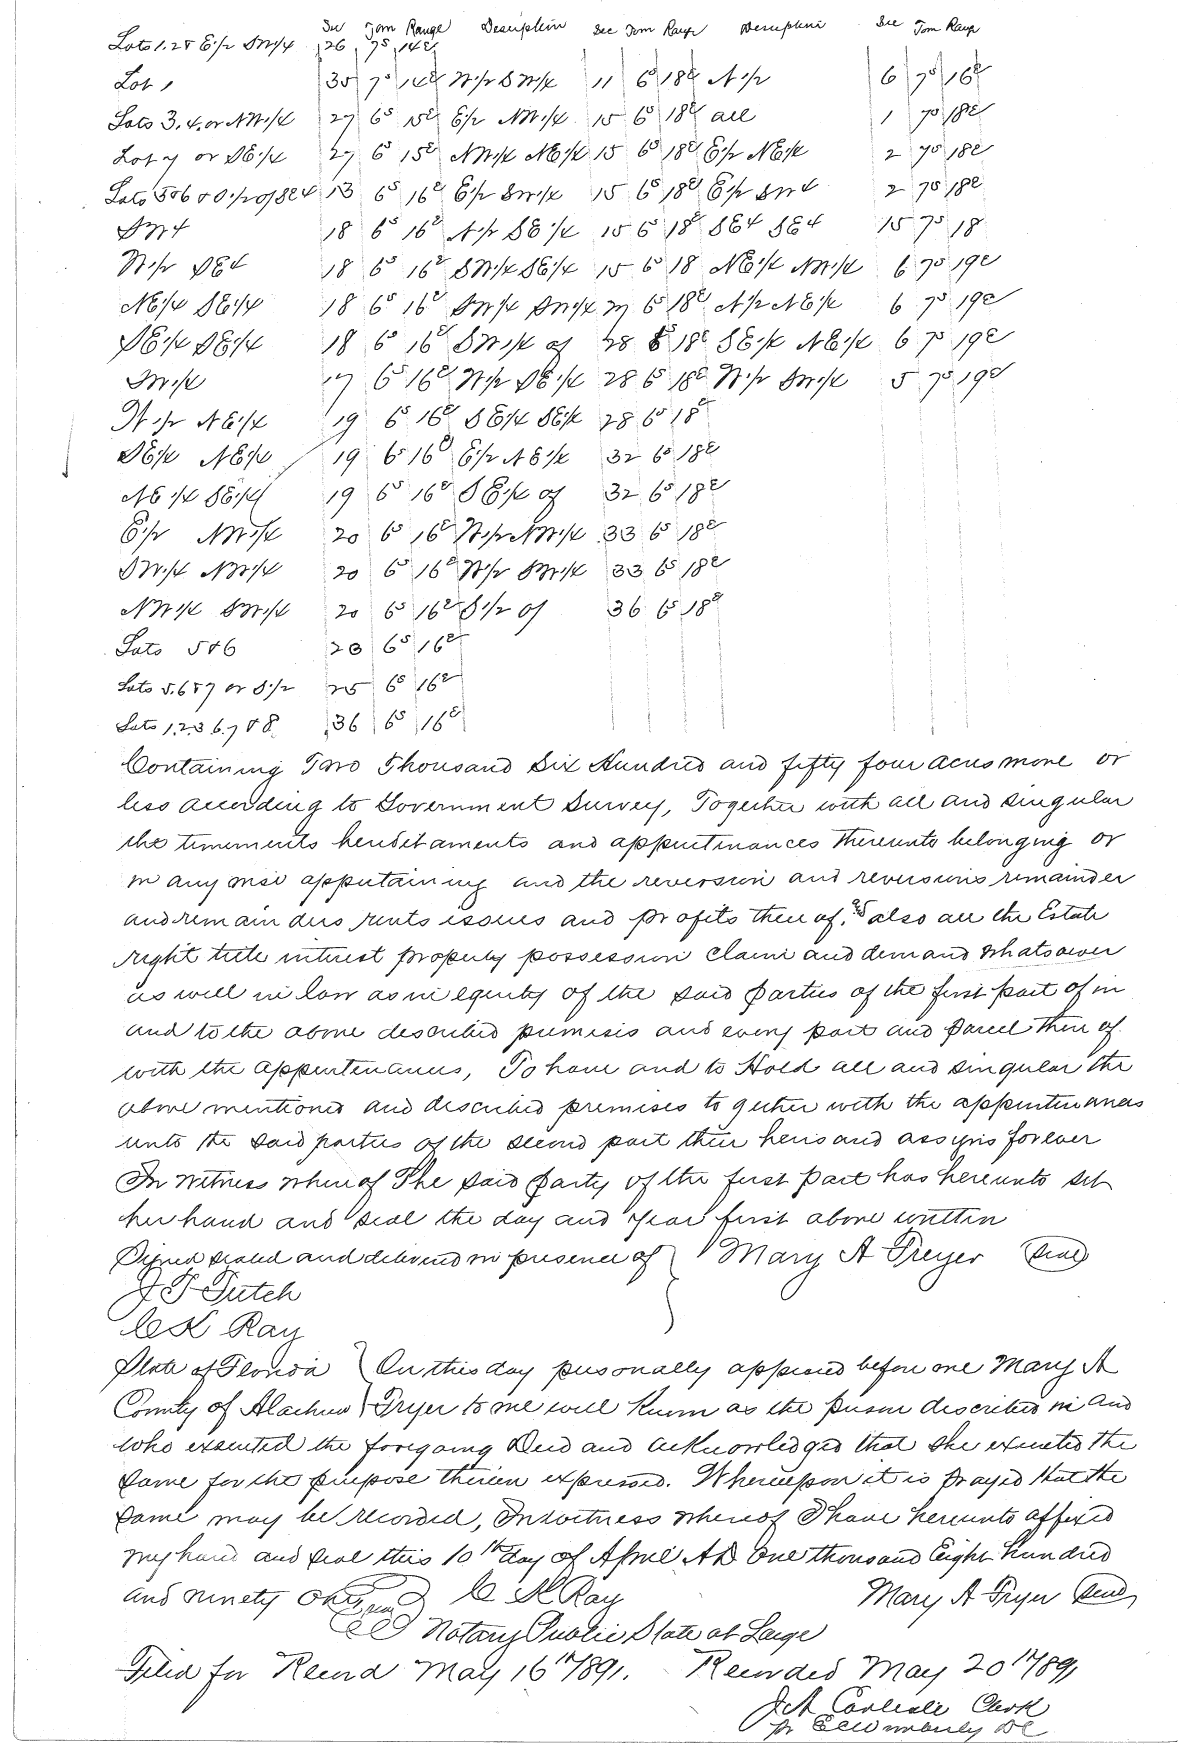 Sec Tom Range Description Sec Tom Range Description Sec Tom Range
Lots 1.2 & E1/2 SW1/4 26 7S 14E
Lot 1 35 7S 14E W1/2 SW1/4 11 6S 18E N1/2 6 7S 16E
Lots 3.4. or NW1/4 27 6S 15E E1/2 NW1/4 15 6S 18E all 1 7S 18E
Lot 7 or SE1/4 27 6S 15E NW1/4 NE1/4 15 6S 18E E1/2 NE1/4 2 7S 18E
Lots 5&6 & S1/2 of SE4 13 6S 16E E1/2 SW1/4 15 6S 18E E1/2 SW4 2 7S 18E
SW4 18 6S 16E N1/2 SE1/4 15 6S 18E SE4 SE4 15 7S 18
W1/2 SE4 18 6S 16E SW1/4 SE1/4 15 6 18 NE1/4 NW1/4 6 7S 19E
NE1/4 SE1/4 18 6S 16E SW1/4 SW1/4 27 6 18E N1/2 NE1/4 6 7S 19E
SE1/4 SE1/4 18 6 16E SW1/4 of 28 6 18E SE1/4 NE1/4 6 7S 19E
SW1/4 17 6S 16E W1/2 SE1/4 28 6S 18E W1/2 SW1/4 5 7S 19E
W1/2 NE1/4 19 6S 16E SE1/4 SE1/4 28 6S 18E
SE1/4 NE1/4 19 6S 16E E1/2 NE1/4 32 6S 18E
NE1/4 SE1/4 19 6S 16E SE1/4 of 32 6S 18E
E1/2 NW1/4 20 6S 16E W1/2 NW1/4 33 6S 18E
SW1/4 NW1/4 20 6S 16E W1/2 SW1/4 33 6S 18E
NW1/4 SW1/4 20 6S 16E S1/2 of 36 6S 18E
Lots 5&6 23 6S 16E
Lots 5.6&7 or S1/2 25 6S 16E
Lots 1.2.3 6.7&8 36 6S 16E
Containing Two Thousand Six Hundred and fifty four acres more or
less according to Government Survey, Together with all and singular
the tenements hereditaments and appurtenances thereunto belonging or
in any wise appertaining and the reversion and reversions remainder
and remainders rents issues and profits thereof, and also all the Estate
right title interest property possession claim and demand whatsoever
as well in law as in equity of the said parties of the first part of in
and to the above described premises and every part and parcel there of
with the appurtenances, To have and to Hold all and singular the
above mentioned and described premises together with the appurtenances
unto the said parties of the second part their heirs and assigns forever
In witness whereof The said party of the first part has hereunto set
her hand and seal the day and year first above written
Signed sealed and delivered in presence of Mary A Fryer Seal
J F Tutch
C K Ray
State of Florida On this day personally appeared before me Mary A
County of Alachua Fryer to me well known as the person described in and
who executed the foregoing Deed and acknowledged that she executed the
same for the purpose therein expressed. Whereupon it is prayed that the
same may be recorded, In witness whereof I have hereunto affixed
my hand and seal this 10th day of April AD One thousand Eight hundred
and ninety one C K Ray Mary A Fryer Seal
Notary Public State at Large
Filed for Record May 16th 1891. Recorded May 20th 1891
J A Carlisle Clerk
pr DC